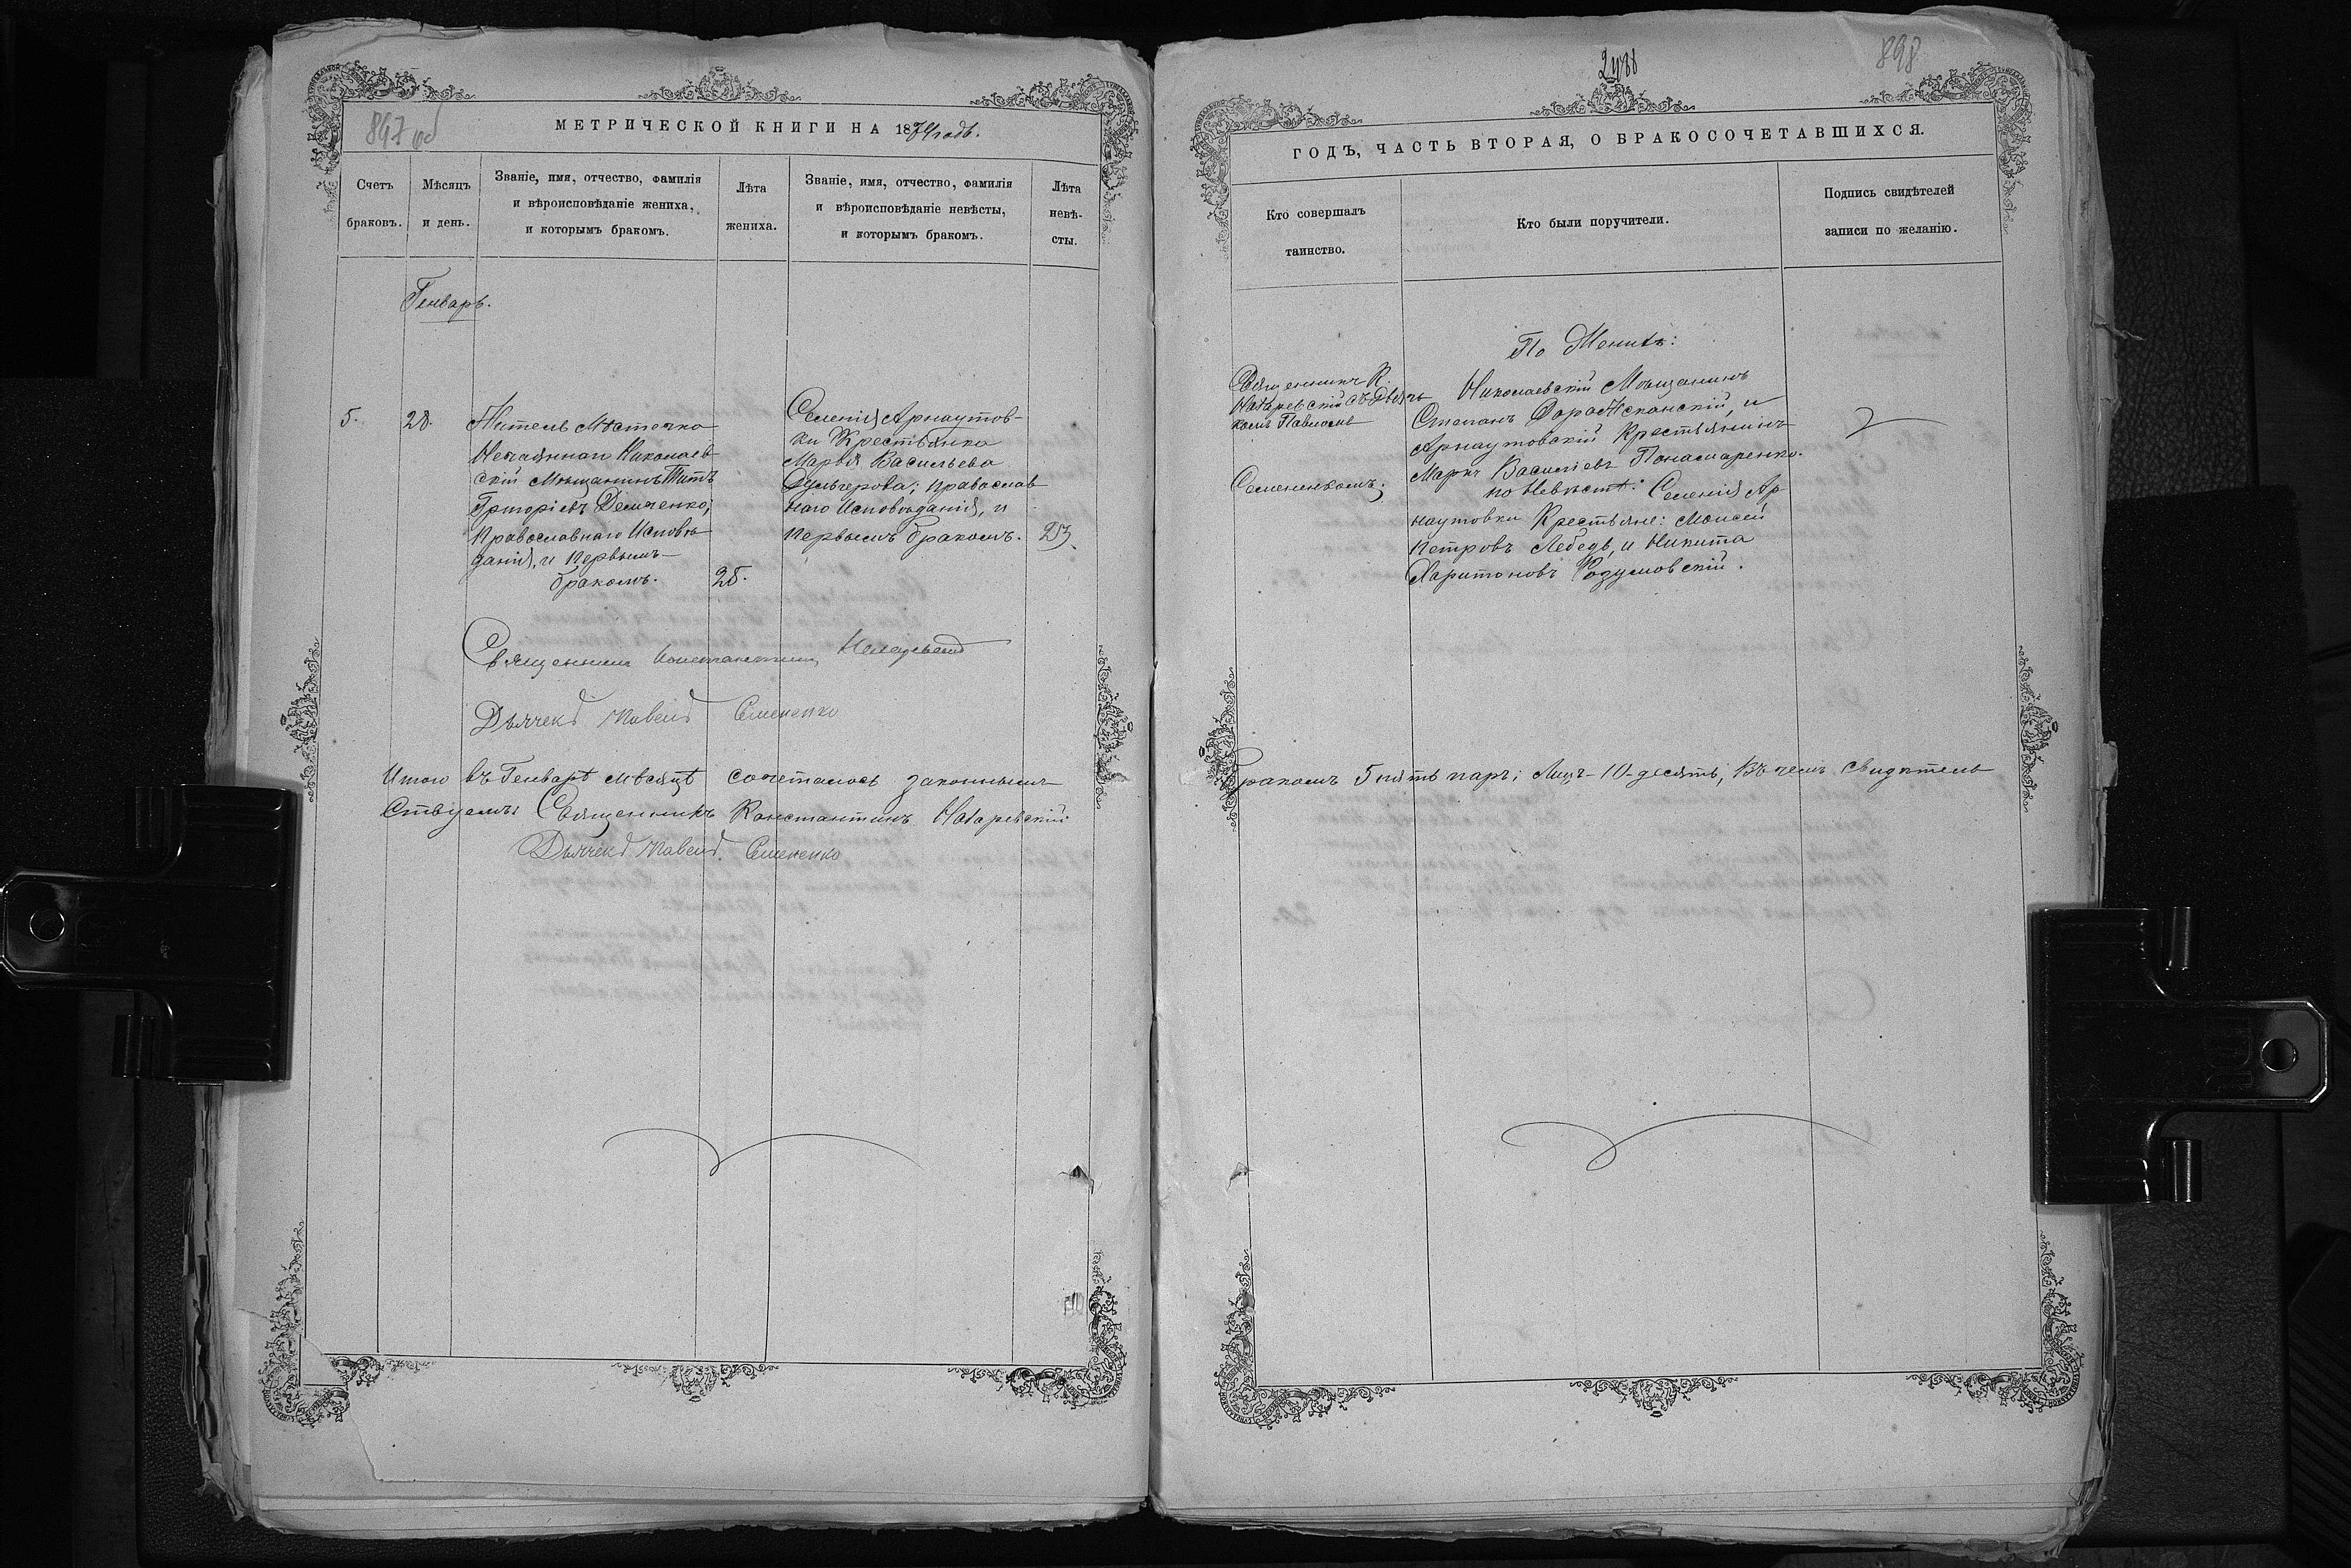 897 об
МЕТРИЧЕСКОЙ КНИГИ НА 1874 годъ.
Счетъ
браковъ.
Мѣсяцъ
и день.
Званіе, имя, отчество, фамилія
и вѣроисповѣданіе жениха,
и которымъ бракомъ.
Лѣта
жениха.
Званіе, имя, отчество, фамилія
и вѣроисповѣданіе невѣсты,
и которымъ бракомъ.
Лѣта
невѣ-
сты.
Генварь.
5.
28.
Житель Мѣстечка
Нечаяннаго Николаев-
скій Мѣщанинъ Титъ
Григоріевъ Демченко;
Православнаго Исповѣ-
данія, и первымъ
бракомъ.
25.
Селенія Арнаутов-
ки Крестьянка
Марѳа Васильева
Дульгерова; православ
наго Исповѣданія, и
первымъ бракомъ.
23.
Священникъ Константинъ
Дьячекъ Павелъ Семененко
Итого въ Генварѣ мѣсяцѣ сочеталось законнымъ
Ствуемъ: Священникъ Константинъ Назаревскій
Дьячекъ Павелъ Семененко
2488
898
ГОДЪ, ЧАСТЬ ВТОРАЯ, О БРАКОСОЧЕТАВШИХСЯ.
Кто совершалъ
таинство.
Кто были поручители.
Подпись свидѣтелей
записи по желанію.
Священникъ К.
Назаревскій съ Дьяч
комъ Павломъ
Семененкомъ.
По Женихѣ:
Николаевскій Мѣщанинъ
Степанъ Дорожсканскій, и
Арнаутовскій Крестьянинъ
Маркъ Василіевъ Понамаренко.
по Невѣстѣ: Селенія Ар
наутовки Крестьяне: Моисей
Петровъ Лебедь, и Никита
Харитоновъ Розумовскій.
бракомъ 5 пять паръ; Лицъ-10-десять; Въ чемъ Свидѣтель